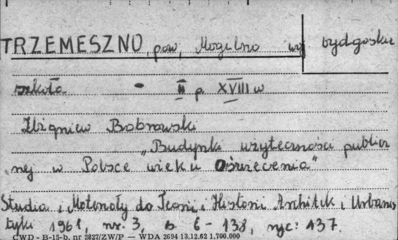 TRZEMESZNO, pow. Mogilno woj bydgoskie
szkoła - II p. XVIII w
Zbigniew Bobrowski
"Budynki użyteczności publicz
nej w Polsce wieku Oświecenia"
Studia i Materiały do Teorii i Historii Architek. i Urbanis
tyki 1961, nr. 3, s. 6 - 138, ryc. 137.
CWD - B-15-b, nr 2827/ZW/P — WDA 2694 13.12.62 1.700.000